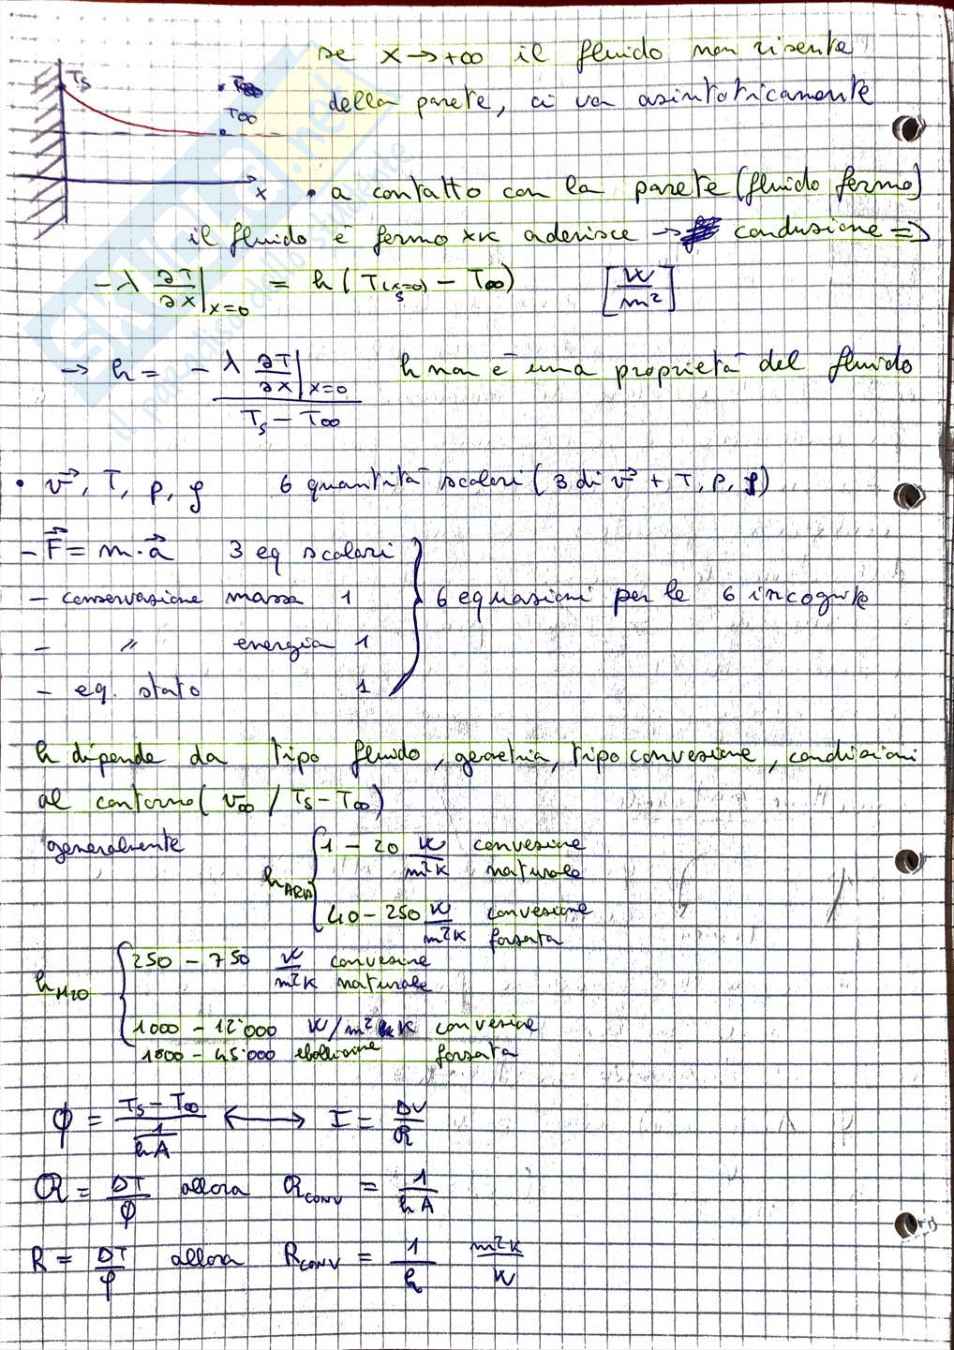 se x→+∞ il fluido non risente
Ts
T∞
della parete, ci va asintoticamente
x
• a contatto con la parete (fluido fermo)
il fluido è fermo xk aderisce → conduzione ⇒
-λ ∂T/∂x |x=0 = h (Ts(x=0) - T∞) [W/m²]
→ h = -λ ∂T/∂x |x=0 / Ts - T∞ h non è una proprietà del fluido
• v⃗, T, p, ρ 6 quantità scalari (3 di v⃗ + T, p, ρ)
- F⃗ = m·a⃗ 3 eq scalari
- conservazione massa 1 6 equazioni per le 6 incognite
- " energia 1
- eq. stato 1
h dipende da tipo fluido, geometria, tipo convezione, condizioni
al contorno (v∞ / Ts - T∞)
generalmente
hARIA { 1 - 20 W/m²K convezione naturale
40 - 250 W/m²K convezione forzata
hH2O { 250 - 750 W/m²K convezione naturale
1000 - 12'000 W/m²K convezione forzata
1800 - 45'000 ebollizione
ϕ = Ts - T∞ / 1/hA ⟷ I = ΔV/R
R = ΔT/ϕ allora RCONV = 1/hA
R = ΔT/φ allora RCONV = 1/h m²K/W
SKUOLA.net
il paradiso dello studente